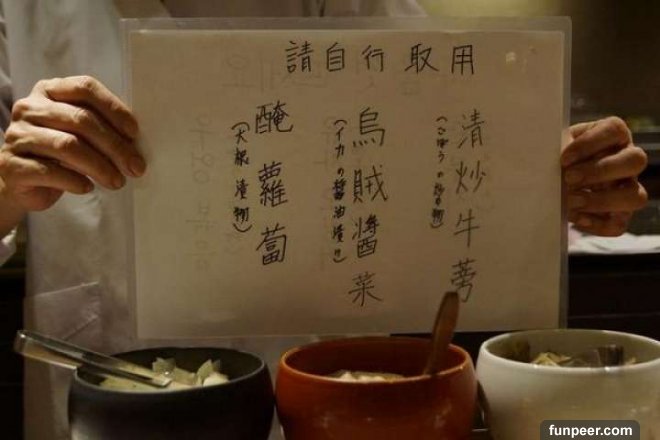 請自行取用
清炒牛蒡
(ごぼうの炒め物)
烏賊醬菜
(イカの醤油漬け)
醃蘿蔔
(大根漬物)
funpeer.com